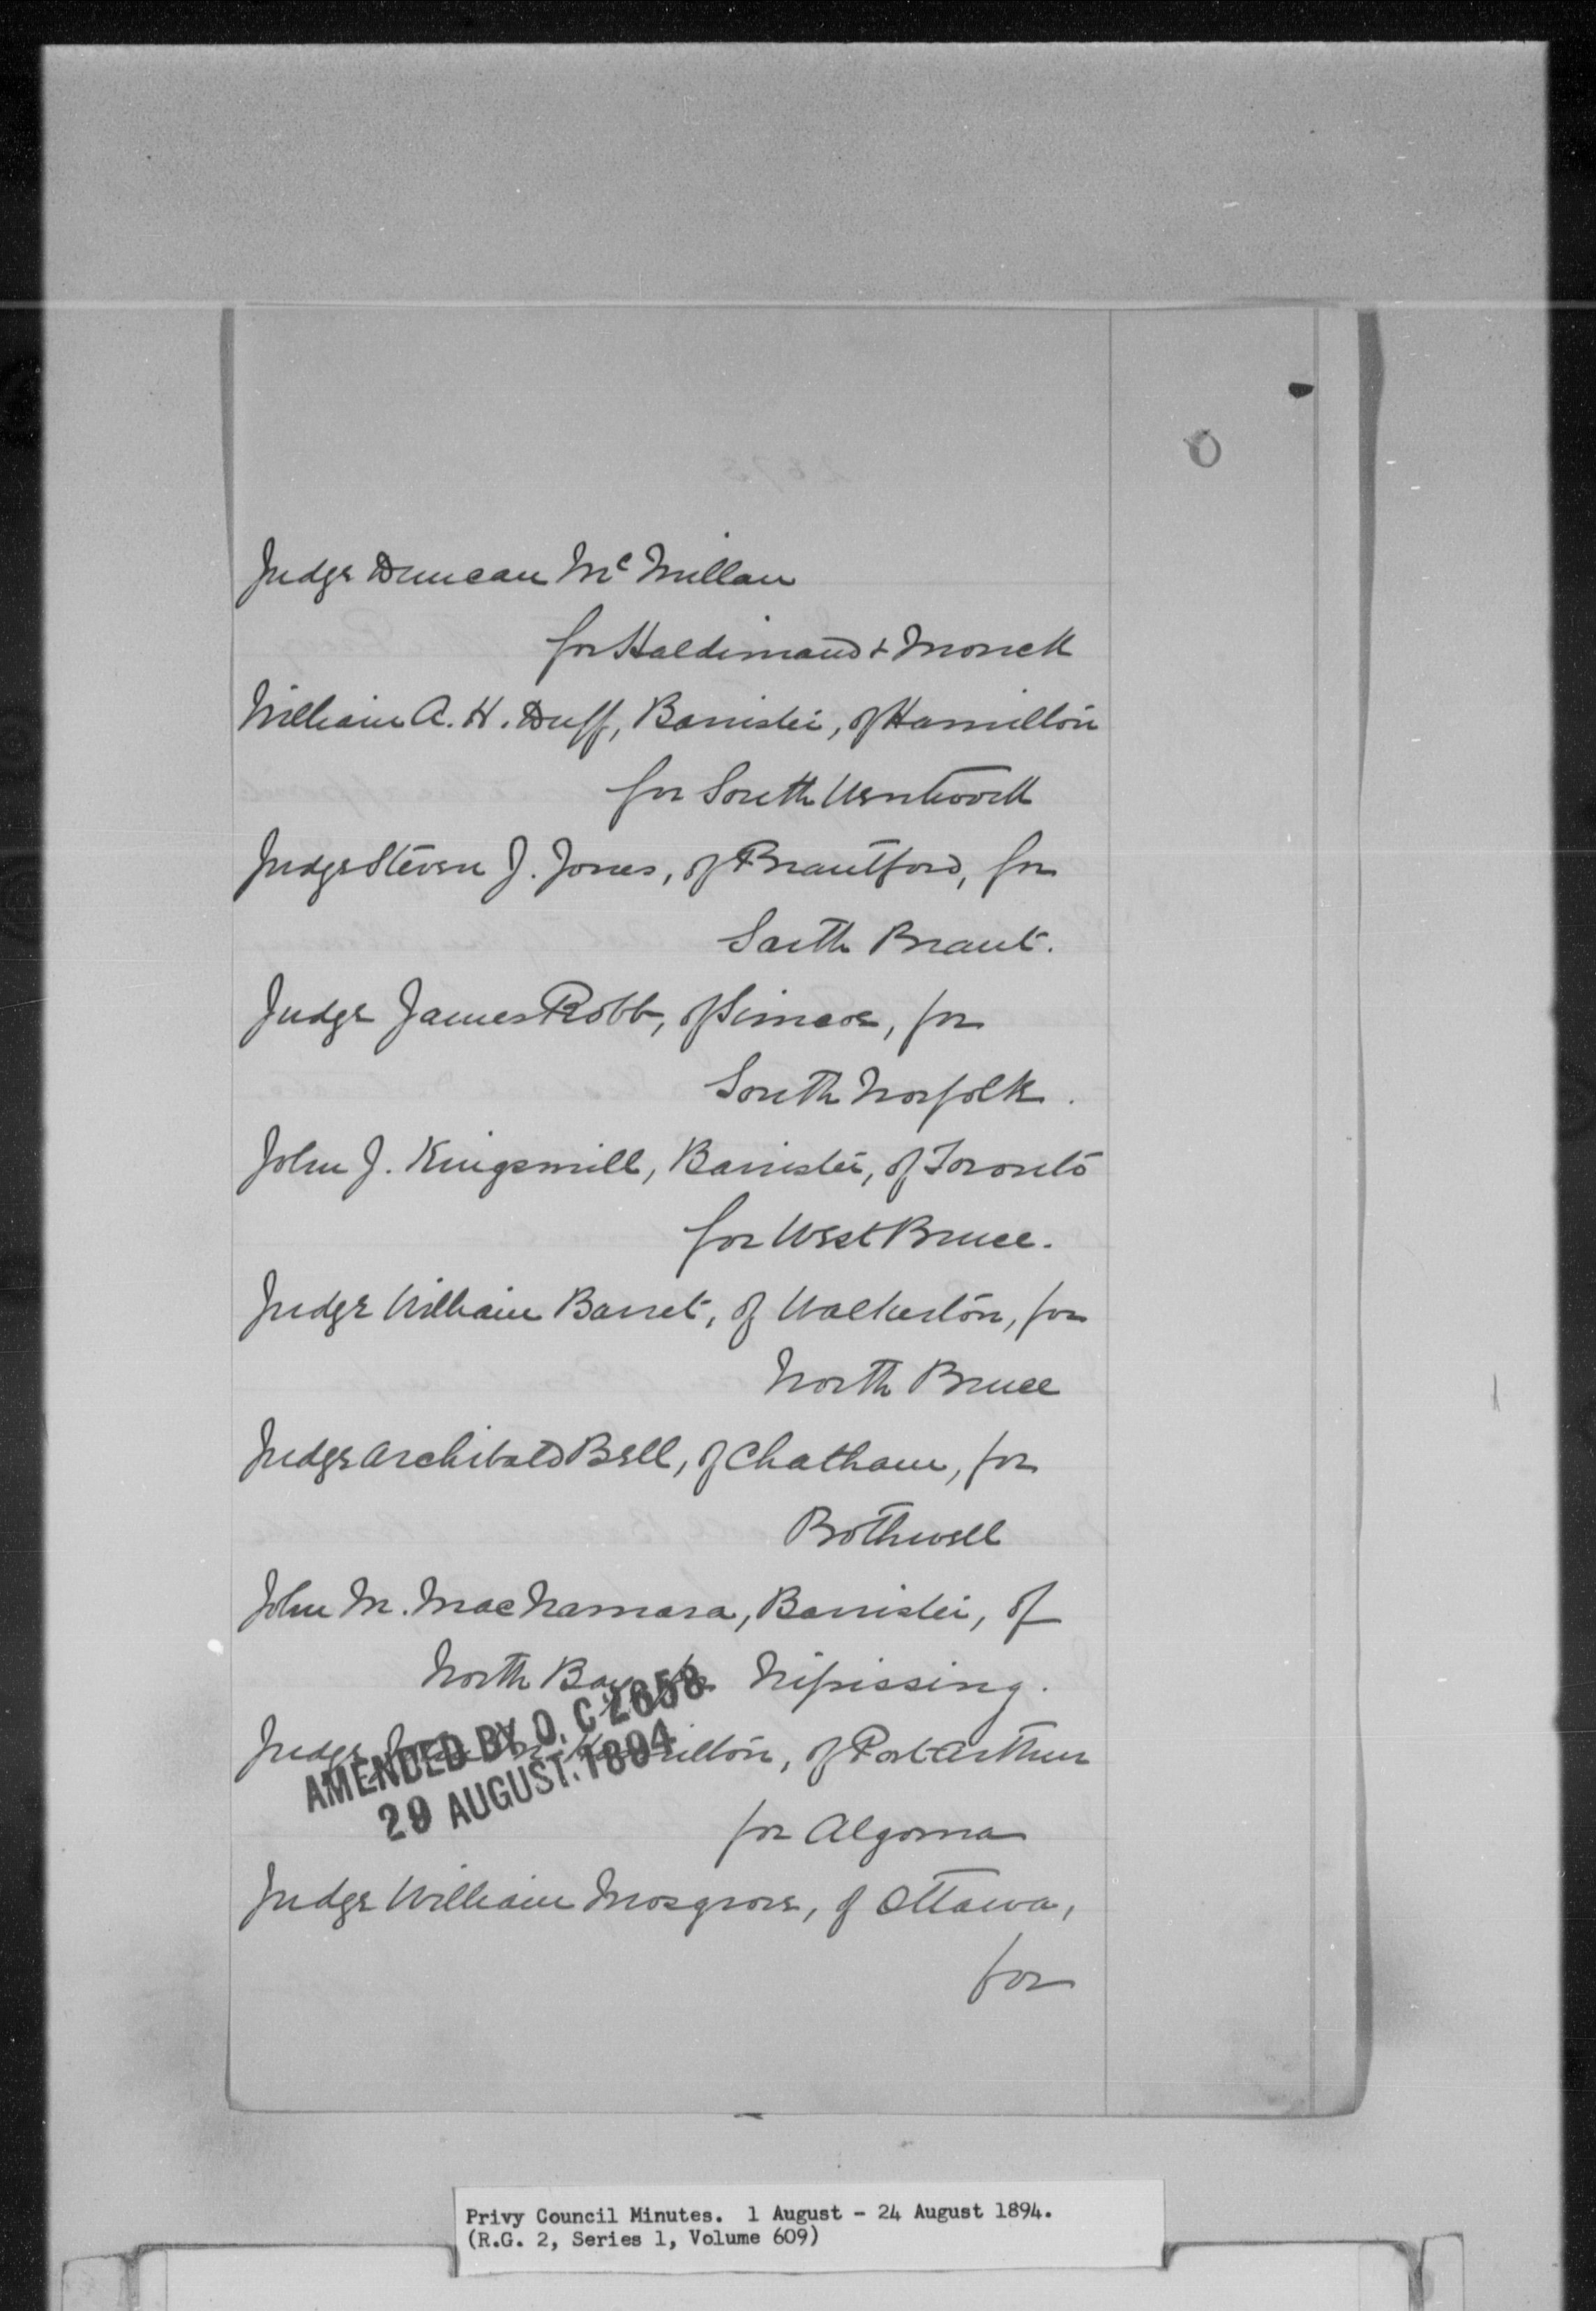 Judge Duncan McMillan
for Haldimand & Monck
William A. H. Duff, Barrister, of Hamilton
for South Wentworth
Judge Steven J. Jones, of Brantford, for
South Brant.
Judge James Robb, of Simcoe, for
South Norfolk.
John J. Kingsmill, Barrister, of Toronto
for West Bruce.
Judge William Barret, of Walkerton, for
North Bruce
Judge Archibald Bell, of Chatham, for
Bothwell
John M. MacNamara, Barrister, of
North Bay, for Nipissing.
Judge of Port Arthur
AMENDED BY O. C 2658
29 AUGUST. 1894
for Algoma
Judge William Mosgrove, of Ottawa,
for
Privy Council Minutes. 1 August - 24 August 1894.
(R.G. 2, Series 1, Volume 609)